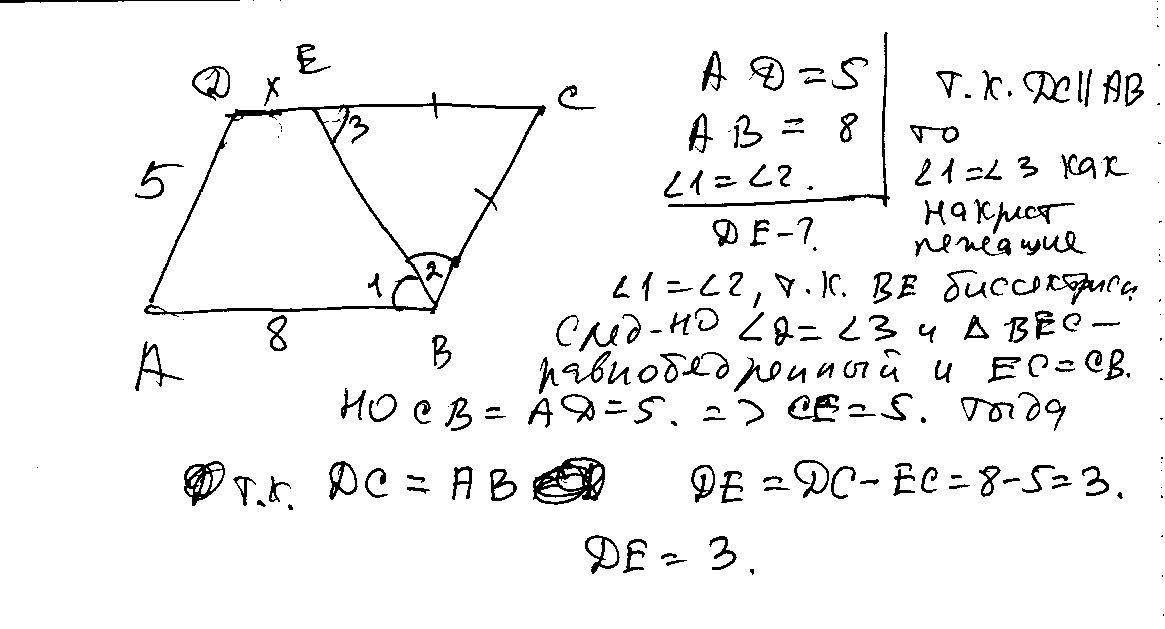 D x E C
3
5
1 2
A 8 B
AD = 5
AB = 8
∠1 = ∠2.
DE - ?
т.к. DC || AB
то
∠1 = ∠3 как
накрест
лежащие
∠1 = ∠2, т.к. BE биссектриса
след-но ∠2 = ∠3 и △ BEC –
равнобедренный и EC = CB.
но CB = AD = 5. => CE = 5. тогда
т.к. DC = AB DE = DC - EC = 8 - 5 = 3.
DE = 3.